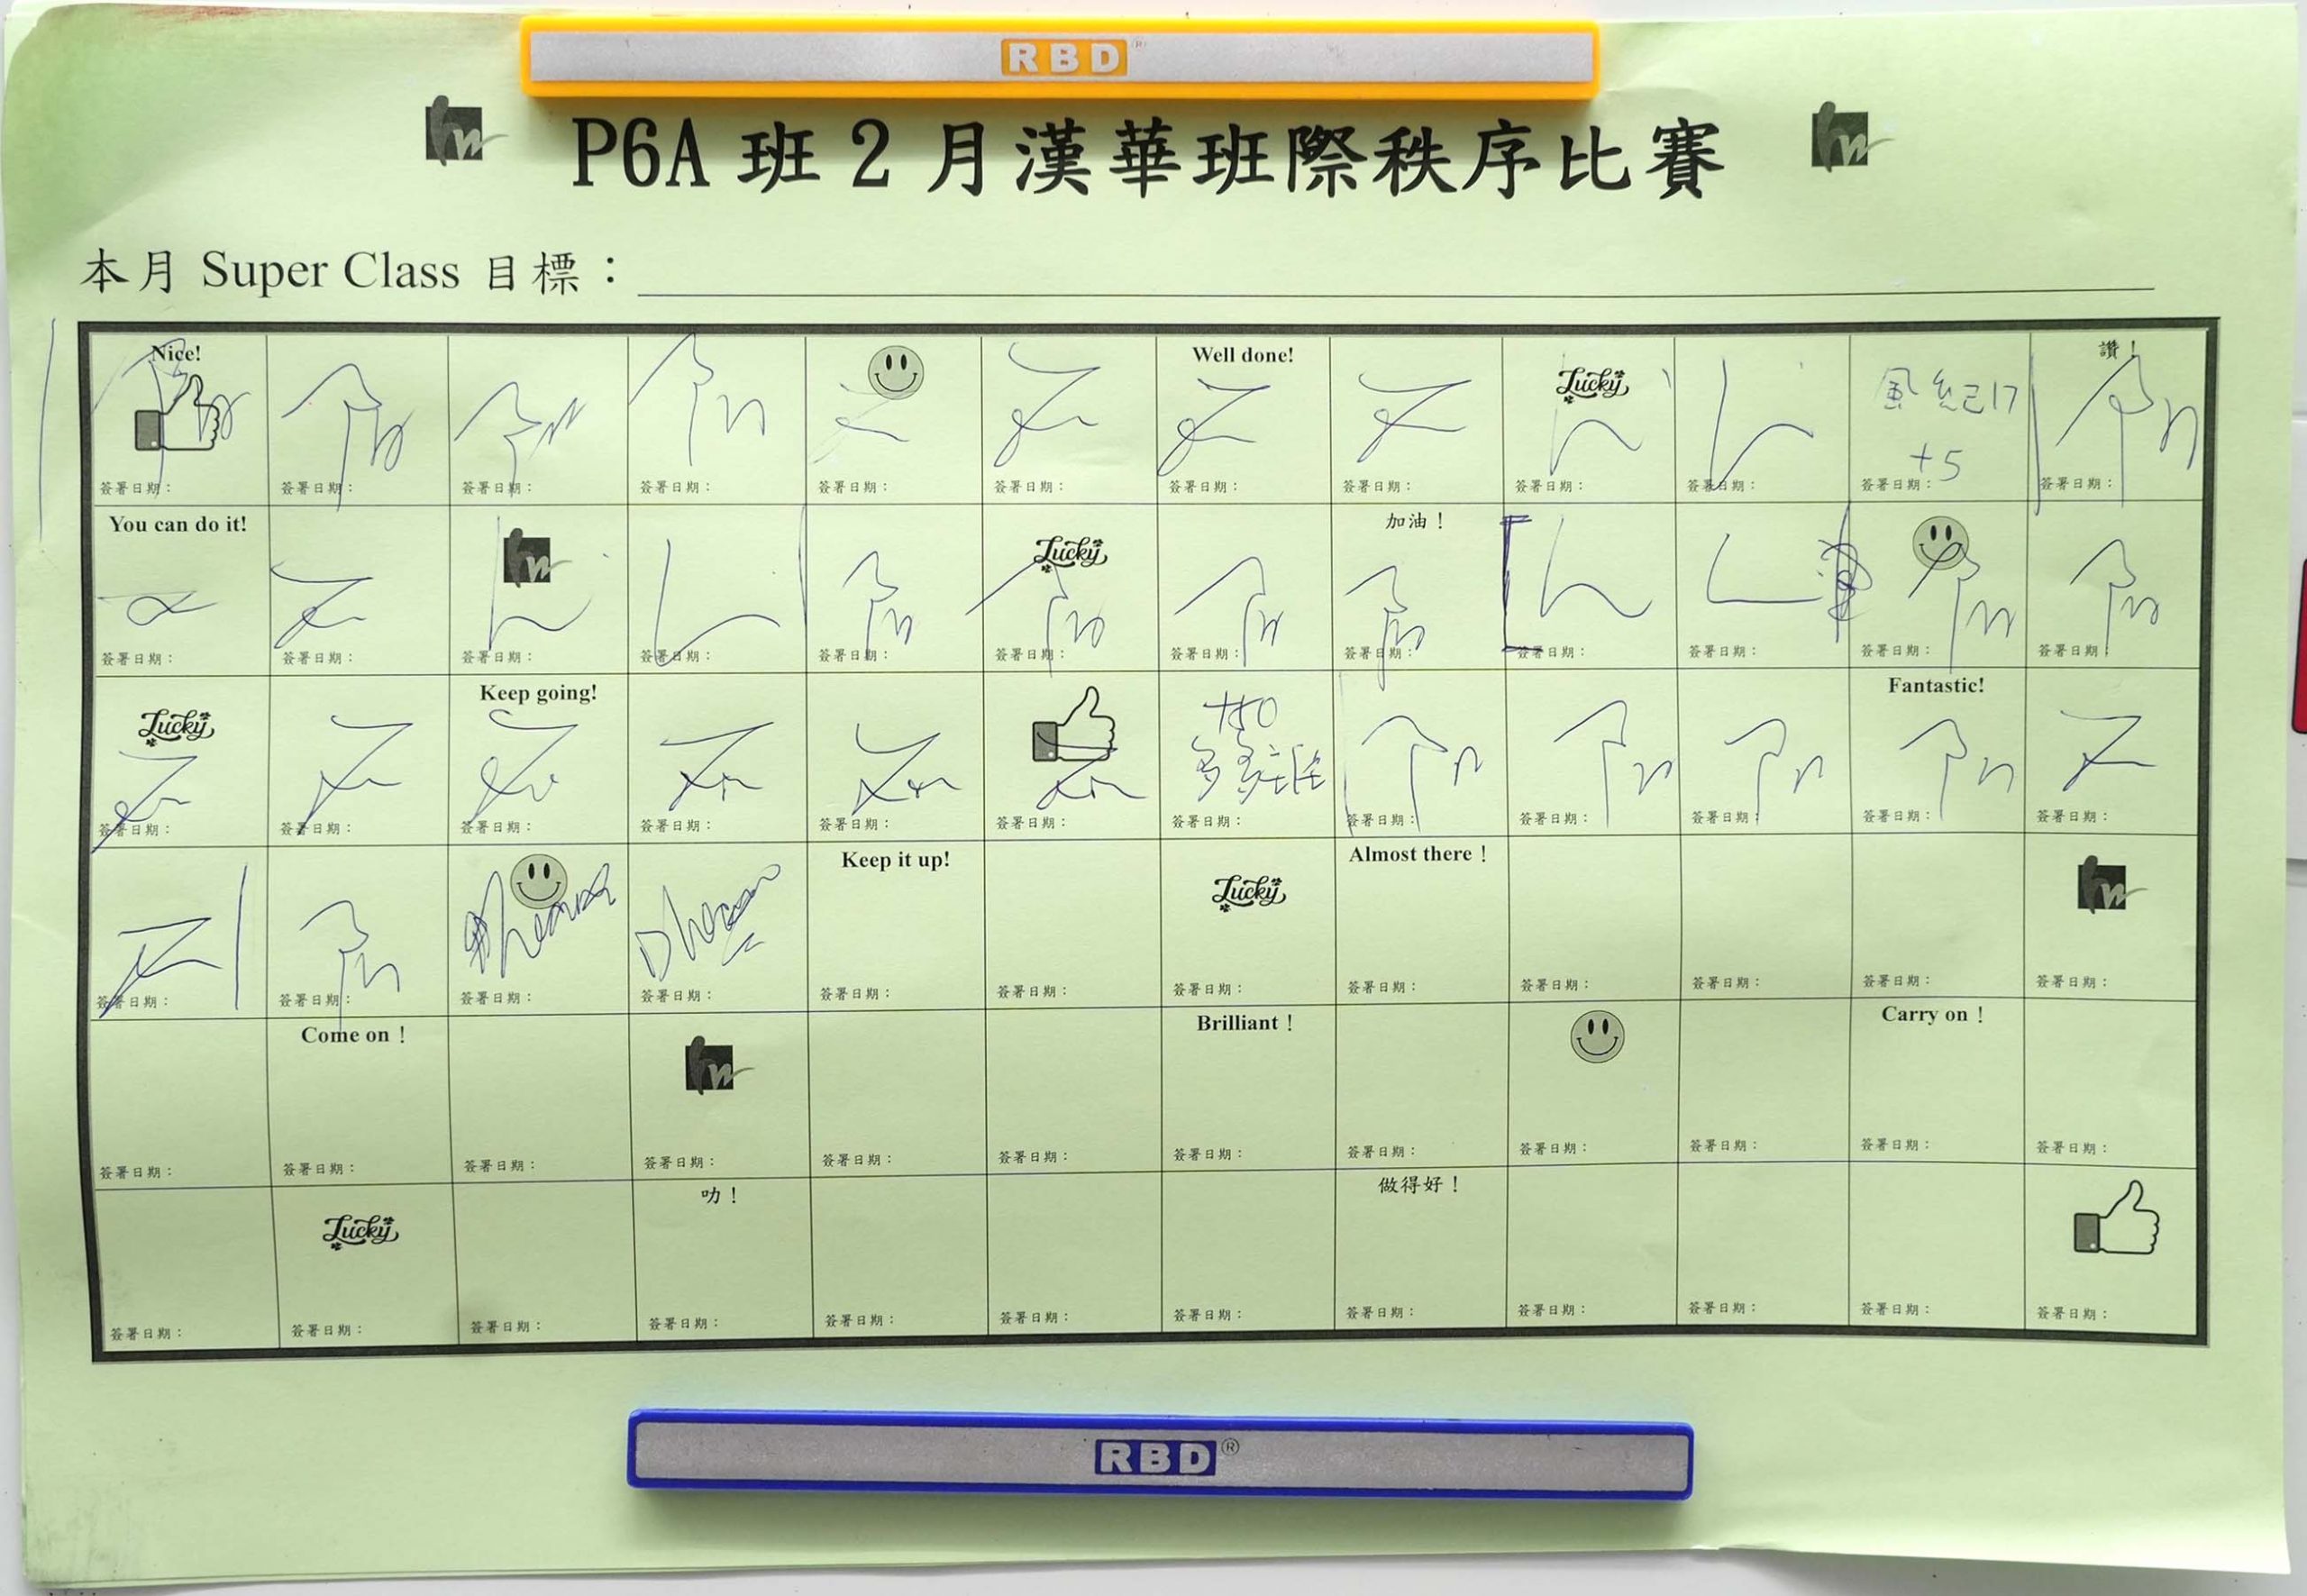 RBD
P6A 班 2 月漢華班際秩序比賽
本月 Super Class 目標：
Nice! Well done! Lucky 風紀17 讚！
+5
簽署日期： 簽署日期： 簽署日期： 簽署日期： 簽署日期： 簽署日期： 簽署日期： 簽署日期： 簽署日期： 簽署日期： 簽署日期： 簽署日期：
You can do it! hw Lucky 加油！
簽署日期： 簽署日期： 簽署日期： 簽署日期： 簽署日期： 簽署日期： 簽署日期： 簽署日期： 簽署日期： 簽署日期： 簽署日期： 簽署日期：
Lucky Keep going! Fantastic!
簽署日期： 簽署日期： 簽署日期： 簽署日期： 簽署日期： 簽署日期： 簽署日期： 簽署日期： 簽署日期： 簽署日期： 簽署日期： 簽署日期：
Keep it up! Lucky Almost there！ hw
簽署日期： 簽署日期： 簽署日期： 簽署日期： 簽署日期： 簽署日期： 簽署日期： 簽署日期： 簽署日期： 簽署日期： 簽署日期： 簽署日期：
Come on！ hw Brilliant！ Carry on！
簽署日期： 簽署日期： 簽署日期： 簽署日期： 簽署日期： 簽署日期： 簽署日期： 簽署日期： 簽署日期： 簽署日期： 簽署日期： 簽署日期：
Lucky 叻！ 做得好！
簽署日期： 簽署日期： 簽署日期： 簽署日期： 簽署日期： 簽署日期： 簽署日期： 簽署日期： 簽署日期： 簽署日期： 簽署日期： 簽署日期：
RBD®